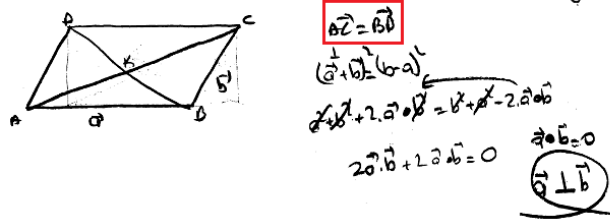 D C
K
b⃗
A a⃗ B
AC⃗ = BD⃗
(a⃗+b⃗)²=(b-a)²
a²+b²+2.a⃗•b⃗ = b²+a²-2.a⃗•b
a⃗•b=0
2a⃗.b⃗+2a⃗•b=0
a⃗⊥b⃗